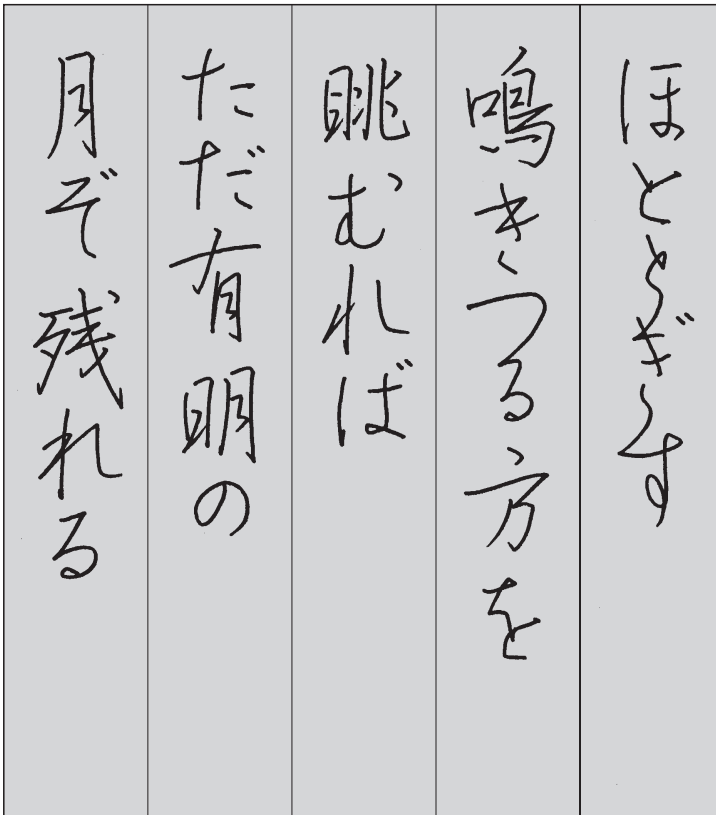 ほととぎす
鳴きつる方を
眺むれば
ただ有明の
月ぞ残れる